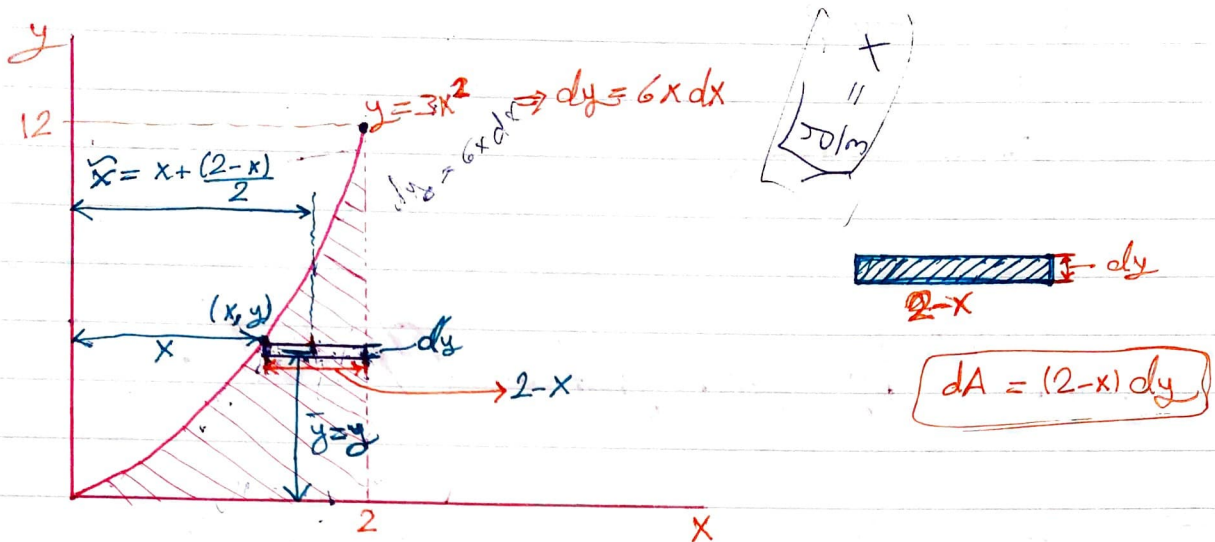 y
12
y = 3x² ⇒ dy = 6x dx
dy = 6x dx
x̃ = x + (2-x)/2
(x, y)
x
dy
2-x
ȳ = y
2
X
x
=
dy
2-x
dA = (2-x) dy